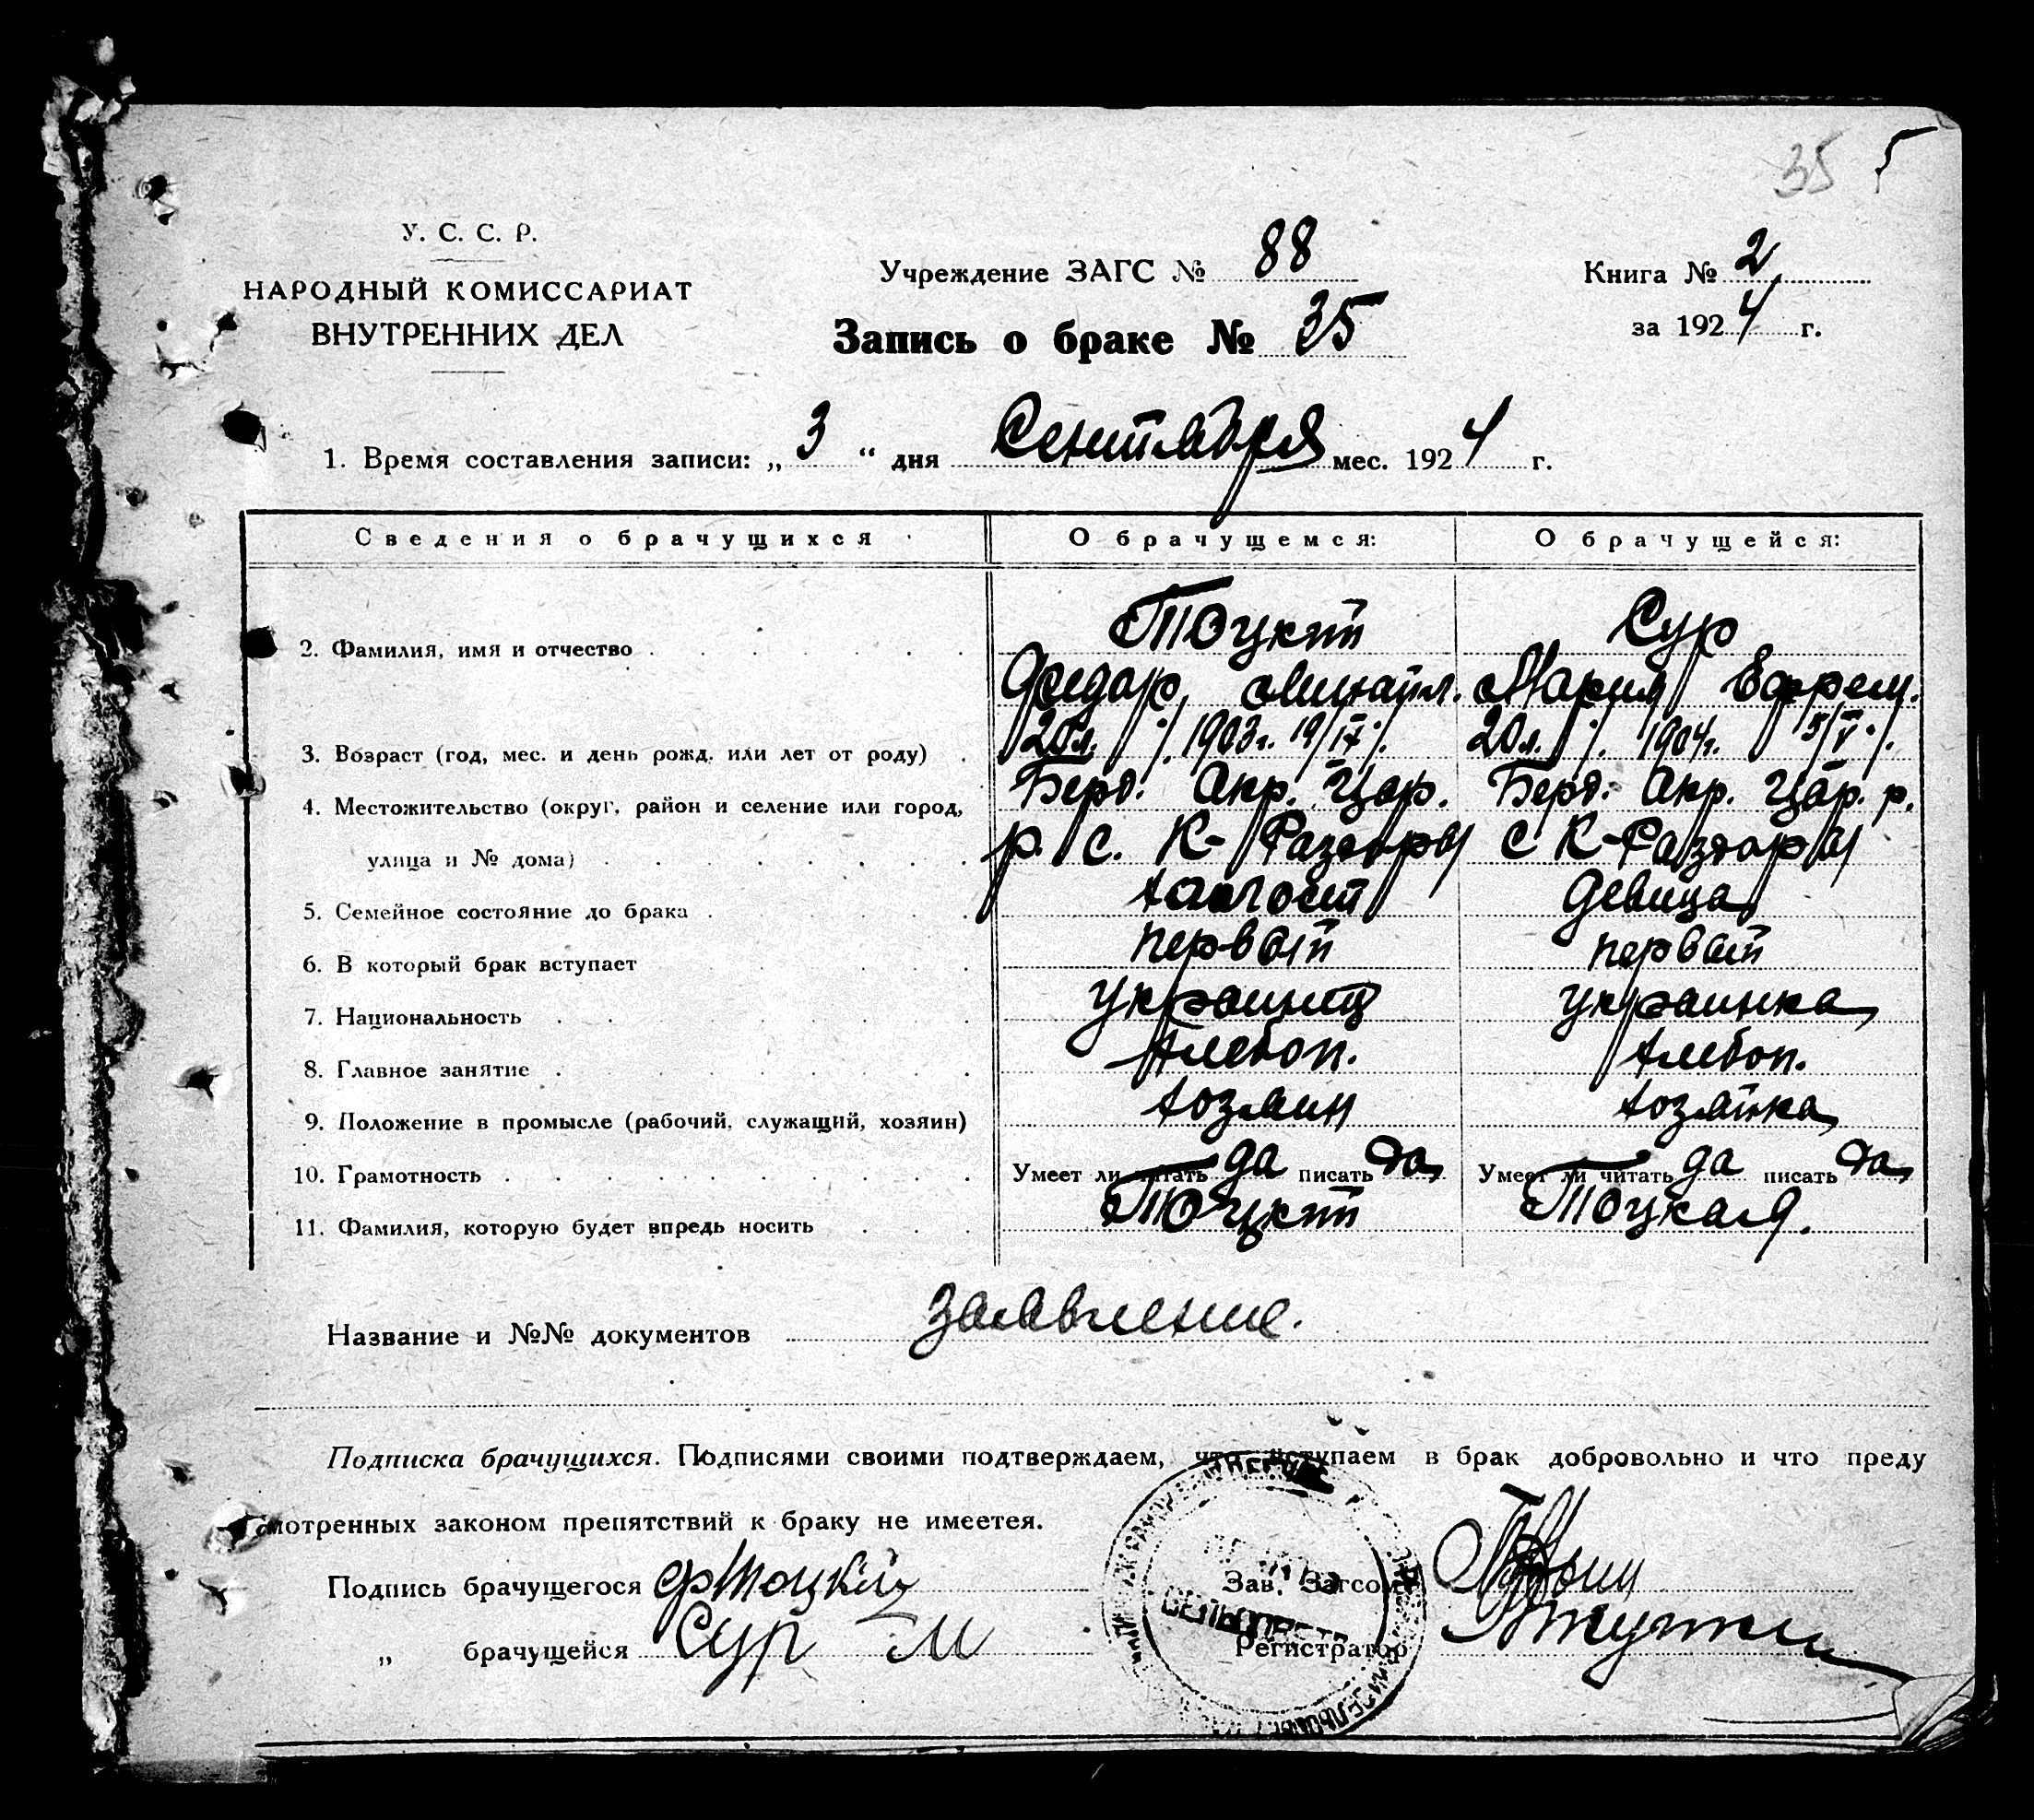 35 5
У. С. С. Р.
НАРОДНЫЙ КОМИССАРИАТ
ВНУТРЕННИХ ДЕЛ
Учреждение ЗАГС № 88
Книга № 2
Запись о браке № 35
за 1924 г.
1. Время составления записи: „3“ дня Сентября мес. 1924 г.
Сведения о брачущихся О брачущемся: О брачущейся:
Тоцкий Сур
2. Фамилия, имя и отчество
Федор Михайл. Мария Ефрем.
3. Возраст (год, мес. и день рожд. или лет от роду) 20 л. 1903 г. 19/IX 20 л. 1904 г. 5/V
4. Местожительство (округ, район и селение или город, Берд. Окр. Цар. Берд. Окр. Цар. р.
улица и № дома) р. с. К-Раздоры с К-Раздоры
5. Семейное состояние до брака холост девица
6. В который брак вступает первый первый
7. Национальность украинец украинка
8. Главное занятие хлебоп. хлебоп.
9. Положение в промысле (рабочий, служащий, хозяин) хозяин хозяйка
10. Грамотность Умеет ли читать да писать да Умеет ли читать да писать да
11. Фамилия, которую будет впредь носить Тоцкий Тоцкая.
Название и №№ документов заявление.
Подписка брачущихся. Подписями своими подтверждаем, что вступаем в брак добровольно и что преду
смотренных законом препятствий к браку не имеетея.
Подпись брачущегося Ф Тоцкий
Зав. Загсом
„ брачущейся Сур М
Регистратор